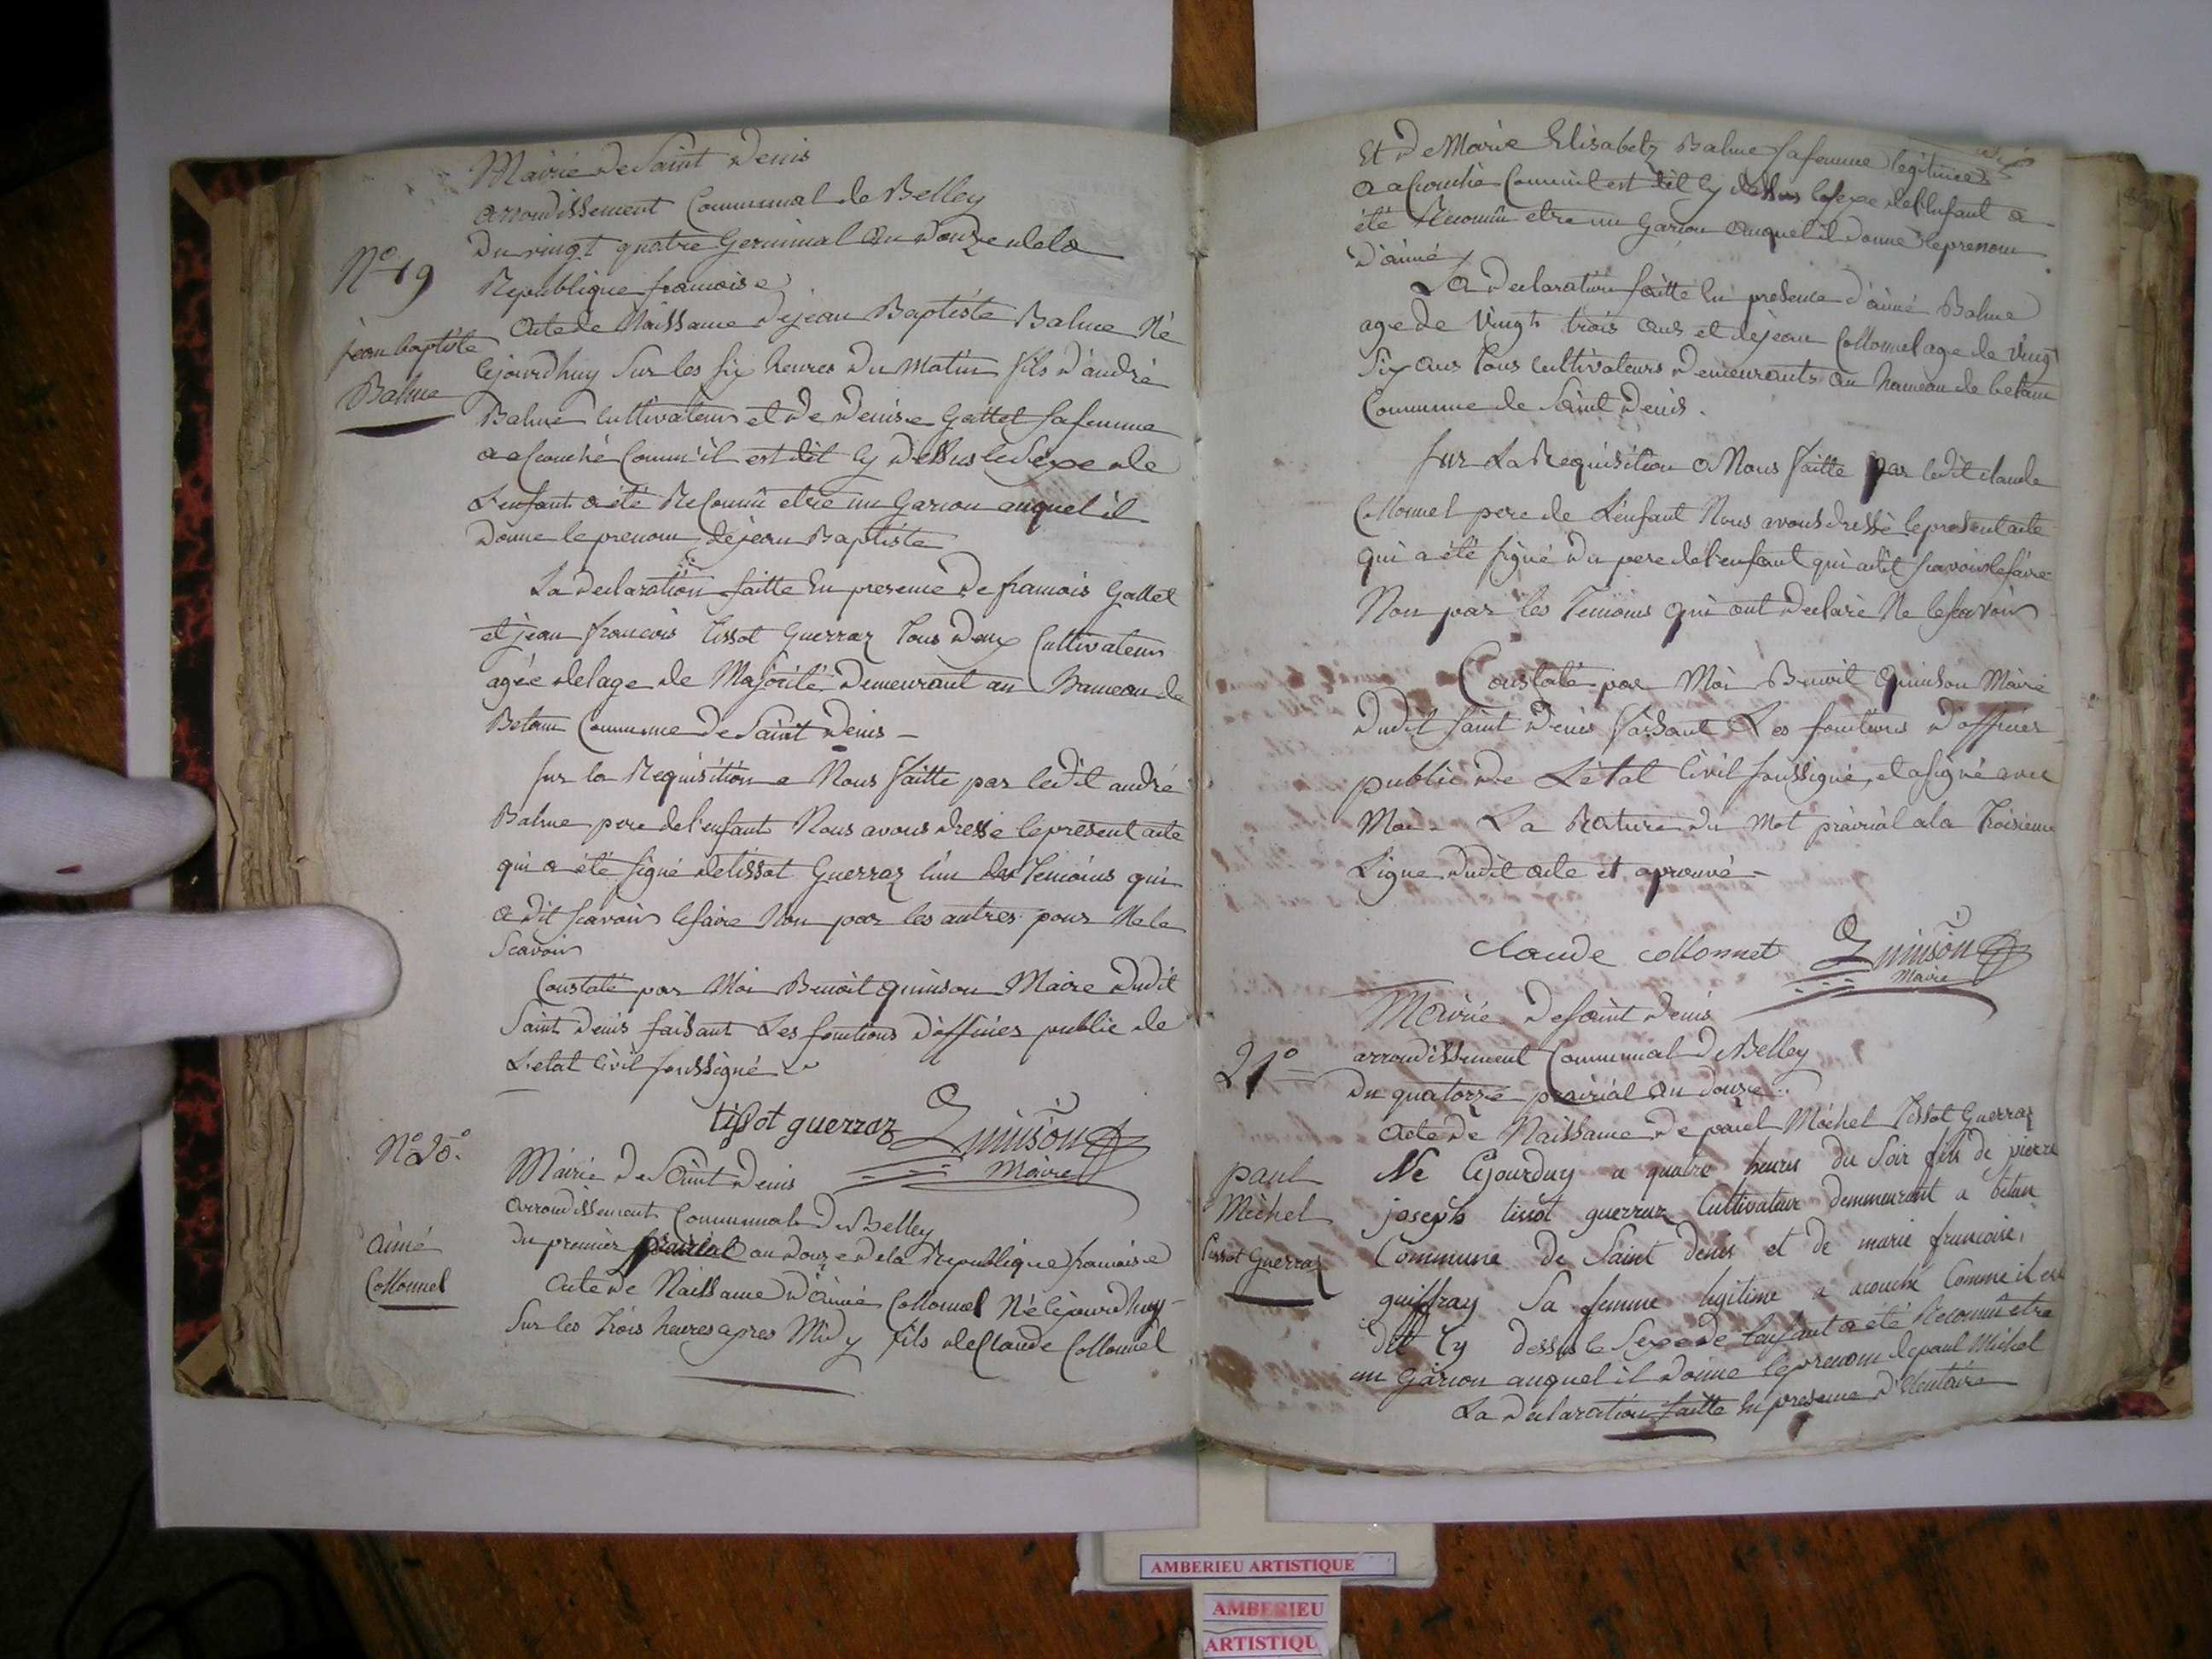 Mairie de Saint Denis
arrondissement Communal de Belley
Du vingt quatre Germinal an Douze de la
Republique francoise
N° 19
jean baptiste
Balme
Acte de Naissance de jean Baptiste Balme Né
cejourdhuy Sur les six heures Du Matin fils d'andré
Balme Cultivateur et De Denise Gattet sa femme
a acouché Comm'il est dit cy Dessus le Sexe de
L'enfant a été Reconnû etre un Garcon auquel il
Donne le prenom de jean Baptiste
La declaration faitte En presence De francois Gattet
et jean francois Tissot Guerraz Tous deux Cultivateurs
agée de lage de Majorité Demeurant au hameau de
Betam Commune De Saint Denis –
sur la Requisition a Nous faitte par ledit andré
Balme pere de l'enfant Nous avons dressé le present acte
qui a été signé de tissot Guerraz l'un des Temoins qui
a dit scavoir le faire Non par les autres pour Ne le
Scavoir
Constaté par Moi Benoit quinson Maire dudit
Saint Denis faisant Les fonctions d'officier public de
L'etat Civil soussigné
tissot guerraz Quinson
Maire
N° 20.
aimé
Collonnel
Mairie de Saint Denis
Arrondissement Communal De Belley
Du premier prairial an douze de la Republique francoise
Acte de Naissance d'aimé Collomel Né cejourdhuy
Sur les trois heures apres Midy fils de Claude Collonnel
Et De Marie Elisabetz Balme sa femme legitime
a acouchée Comm'il est dit cy dessus le sexe de l'Enfant a
été Reconnû etre un Garcon auquel il donne le prenom
D'aimé
La Declaration faitte En presence d'aimé Balme
age de Vingt trois ans et de jean Collonnel age de Vingt
Six ans tous cultivateurs Demeurants au hameau de betam
Commune de Saint Denis.
sur La Requisition a Nous faitte par ledit claude
Collonnel pere de L'enfant Nous avons dressé le present acte
qui a été signé Du pere de l'enfant qui a dit scavoir le faire
Non par les Temoins qui ont Declaré Ne le scavoir
Constaté par Moi Benoit Quinson Maire
Dudit Saint Denis faisant Les fonctions d'officier
public De L'état Civil soussigné, et a signé avec
Moi. La Rature du Mot prairial a la Troisieme
Ligne dudit acte et aprouvé –
claude collonnet Quinson
Maire
Mairie de Saint Denis
21°
arrondissement Communal De Belley
Du quatorze prairial an douze
paul
Michel
Tissot Guerraz
Acte De Naissance De paul Michel Tissot Guerraz
Ne Cejourduy a quatre heures du Soir fils de pierre
joseph tissot guerraz Cultivateur demmeurant a betan
Commune de Saint denis et de marie francoise,
guiffray Sa femme legitime a acouché Comme il est
dit Cy dessus le Sexe de lenfant a été Reconnû etre
un Garcon auquel il donne le prenom de paul Michel
La declaration faitte En presence
AMBERIEU ARTISTIQUE
AMBERIEU
ARTISTIQU